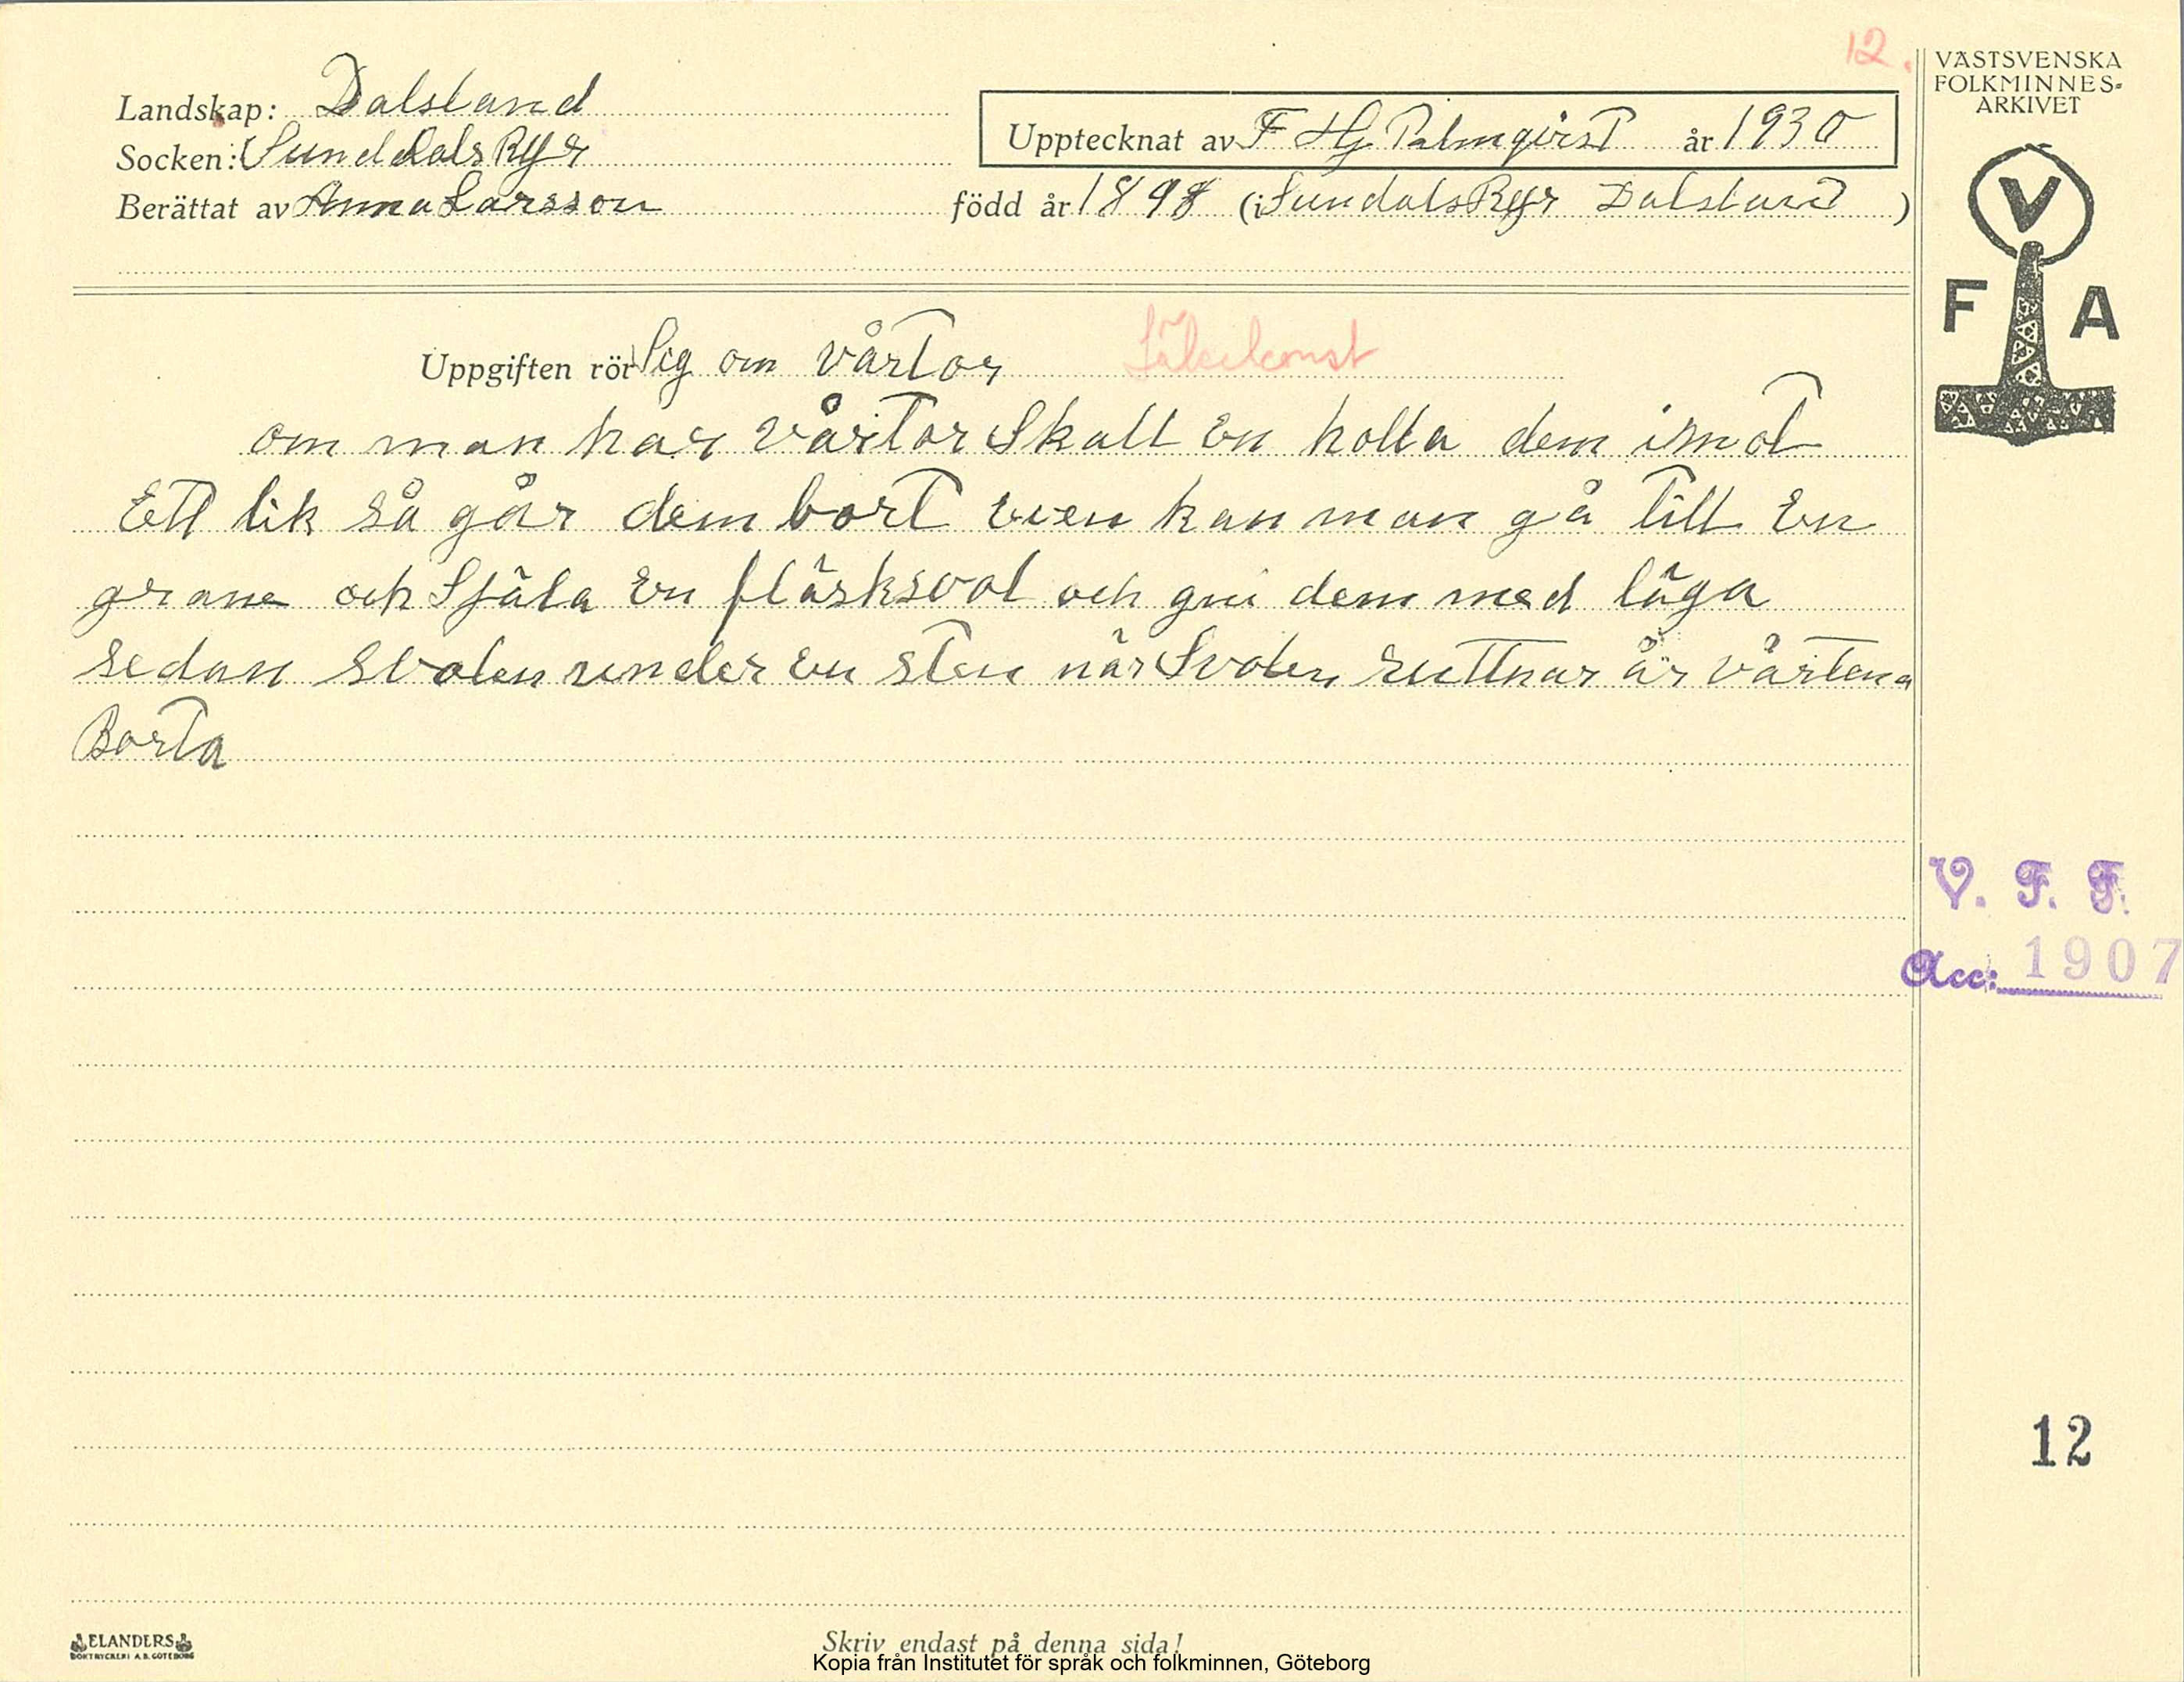 12.
VÄSTSVENSKA
FOLKMINNES-
ARKIVET
Landskap: Dalsland
Socken: Sunddals Ryr
Berättat av Anna Larsson
Upptecknat av F Hj Palmqvist år 1930
född år 1898 (i Sundals Ryr Dalsland )
V
F A
Uppgiften rör Sig om vårtor
Läkekonst
om man har vårtor Skall En holla dem imot
Ett lik så går dem bort även kan man gå till En
grane och Själa En fläsksvol och gni dem med läga
sedan svolen under en sten når Svolen ruttnar är vårtena
Borta
V. F. F.
Acc: 1907
12
ELANDERS
BOKTRYCKERI A.B. GÖTEBORG
Skriv endast på denna sida!
Kopia från Institutet för språk och folkminnen, Göteborg